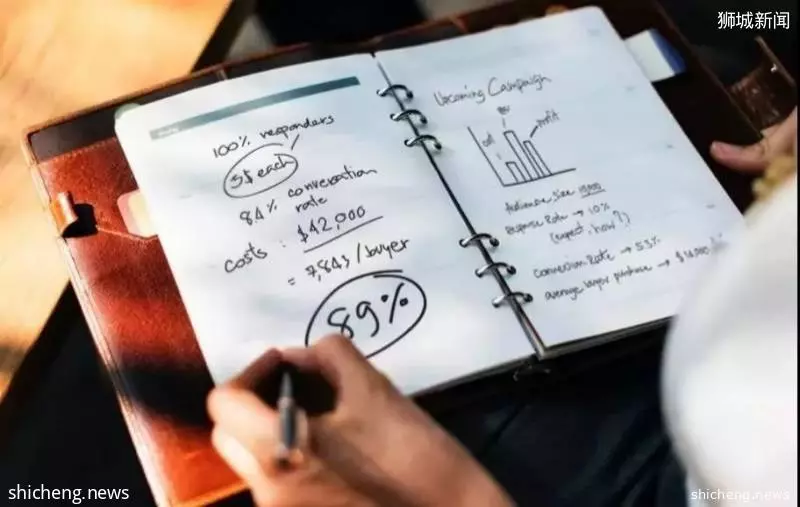 狮城新闻
100% responders
5$ each
8.4% conversation
rate
costs : $42,000
= 7,843 / buyer
89%
Upcoming Campaign
cost
profit
Audience size 10,000
response Rate → 10%
(expect. how?)
conversion Rate → 5.3%
average buyer purchase → $
shicheng.news
shicheng.news